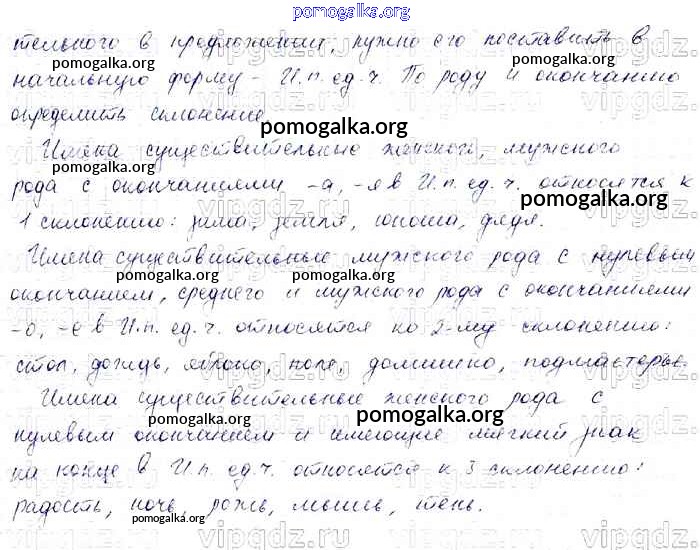 pomogalka.org
тельного в предложении, нужно его поставить в
начальную форму - И.п. ед.ч. По роду и окончанию
определить склонение.
Имена существительные женского, мужского
рода с окончаниями -а, -я в И.п. ед.ч. относятся к
1 склонению: зима, земля, юноша, дядя.
Имена существительные мужского рода с нулевым
окончанием, среднего и мужского рода с окончаниями
-о, -е в И.п. ед.ч. относятся ко 2-му склонению:
стол, дождь, яблоко, поле, домишко, подмастерье.
Имена существительные женского рода с
нулевым окончанием и имеющие мягкий знак
на конце в И.п. ед.ч. относятся к 3 склонению:
радость, ночь, рожь, мышь, тень.
pomogalka.org